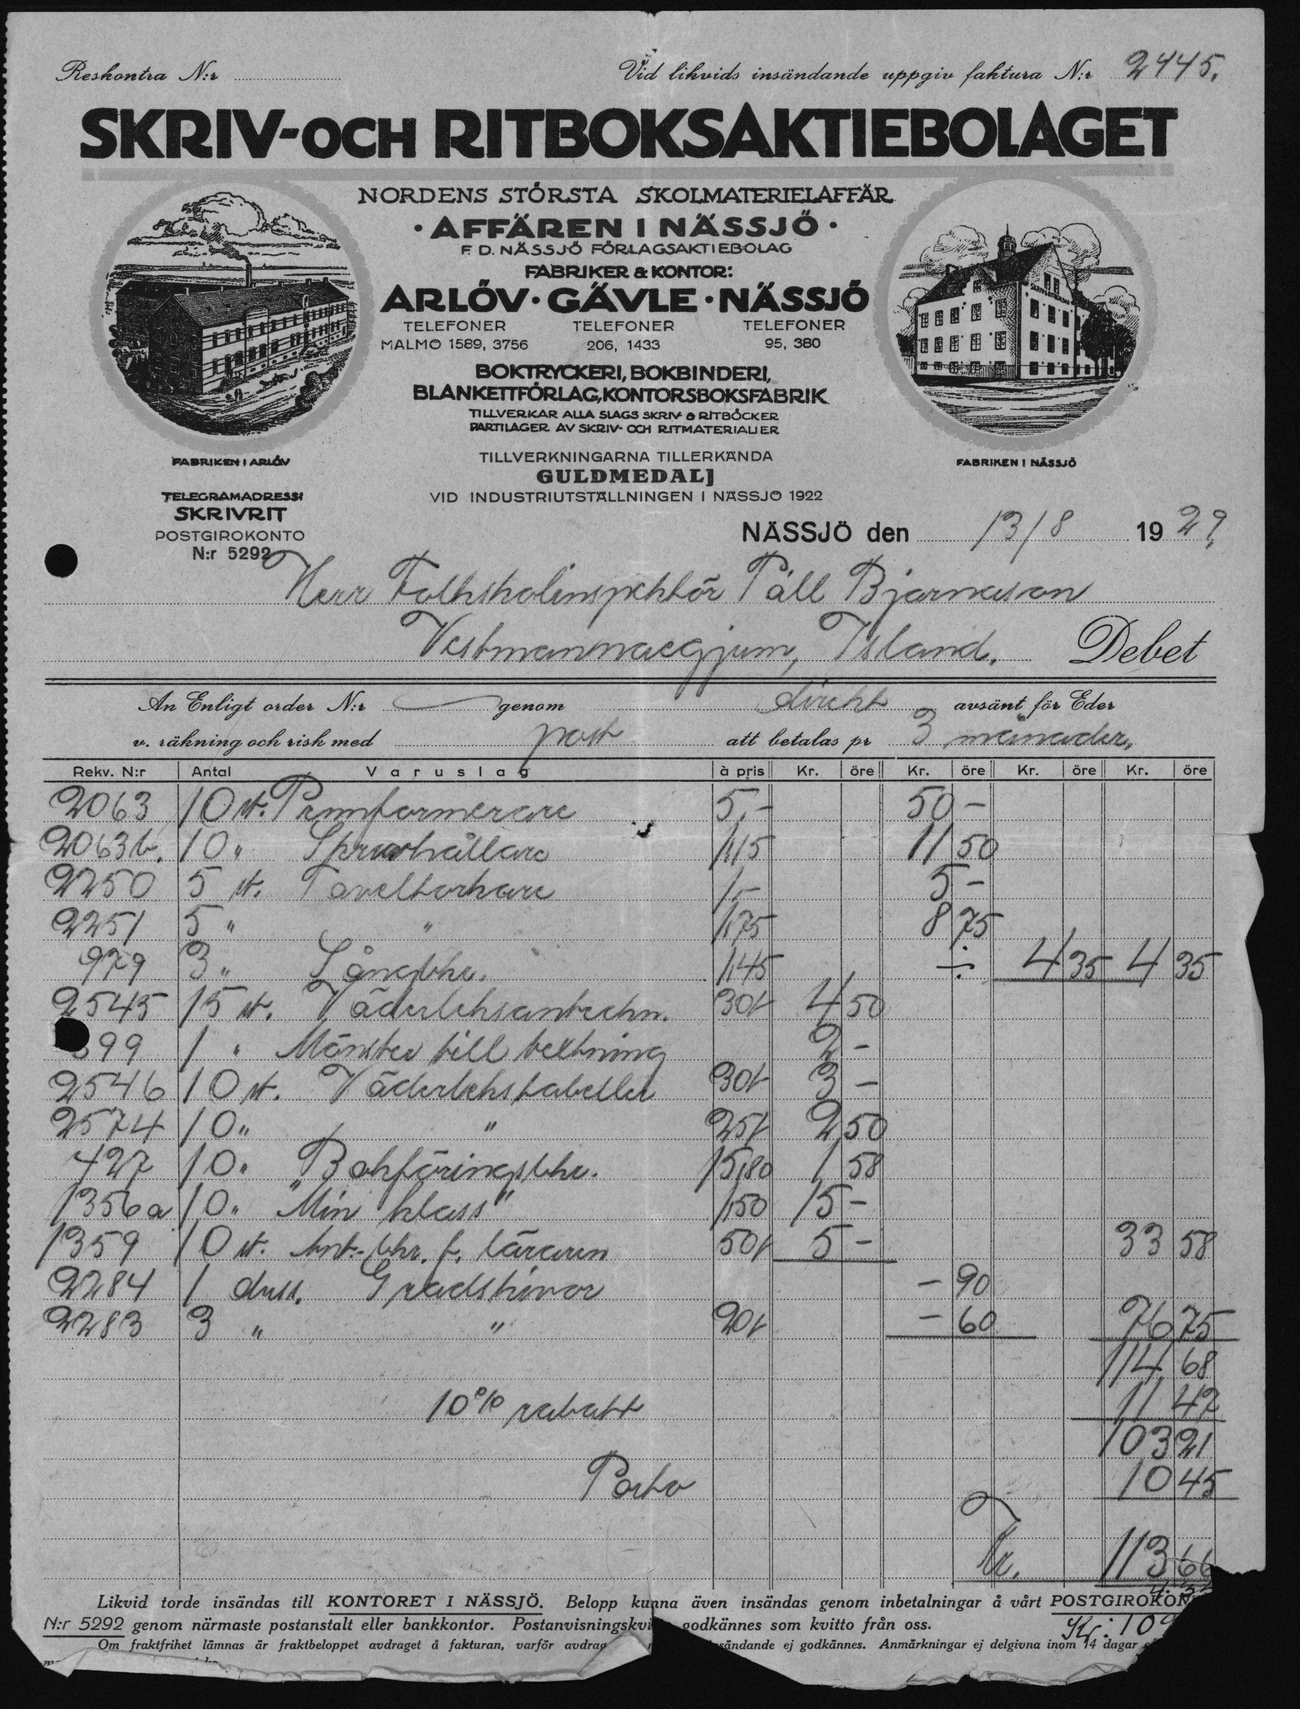 Reskontra N:r
Vid likvids insändande uppgiv faktura N:r 2445.
SKRIV- OCH RITBOKSAKTIEBOLAGET
NORDENS STÖRSTA SKOLMATERIELAFFÄR
· AFFÄREN I NÄSSJÖ ·
F. D. NÄSSJÖ FÖRLAGSAKTIEBOLAG
FABRIKER & KONTOR:
ARLÖV · GÄVLE · NÄSSJÖ
TELEFONER TELEFONER TELEFONER
MALMÖ 1589, 3756 206, 1433 95, 380
BOKTRYCKERI, BOKBINDERI,
BLANKETTFÖRLAG, KONTORSBOKSFABRIK
TILLVERKAR ALLA SLAGS SKRIV- & RITBÖCKER
PARTILAGER AV SKRIV- OCH RITMATERIALIER
FABRIKEN I ARLÖV
FABRIKEN I NÄSSJÖ
TILLVERKNINGARNA TILLERKÄNDA
GULDMEDALJ
VID INDUSTRIUTSTÄLLNINGEN I NÄSSJÖ 1922
TELEGRAMADRESS:
SKRIVRIT
POSTGIROKONTO
N:r 5292
NÄSSJÖ den 13/8 1929.
Herr Folkskolinspektör Páll Bjarnason
Vestmannaegjum, Island. Debet
An Enligt order N:r — genom direkt avsänt för Eder
v. räkning och risk med post att betalas pr 3 månader.
Rekv. N:r Antal Varuslag à pris Kr. öre Kr. öre Kr. öre Kr. öre
2063 10 st. Pennformerare 5,- 50 -
2063b. 10 " 1,15 11 50
2250 5 st. Taveltorkare 1,- 5 -
2251 5 " " 1,75 8 75
979 3 " Sångbkr. 1,45 ÷ 4 35 4 35
2545 15 st. Väderleksanteckn. 30 4 50
99 1 " Mönster till textning 2 -
2546 10 st. Väderlekstabeller 30 3 -
2574 10 " " 25 2 50
427 10 " Bokföringsbkr. 15,80 1 58
1356a 10 " "Min klass" 1,50 15 -
1359 10 st. Ant.-bkr. f. läraren 50 5 - 33 58
2284 1 duss. Gradskivor - 90
2283 3 " " 20 - 60 76 75
114 68
10% rabatt 11 47
103 21
Porto 10 45
Kr. 113 66
Likvid torde insändas till KONTORET I NÄSSJÖ. Belopp kunna även insändas genom inbetalningar å vårt POSTGIROKON
N:r 5292 genom närmaste postanstalt eller bankkontor. Postanvisningskvi godkännes som kvitto från oss.
Kr: 109
Om fraktfrihet lämnas är fraktbeloppet avdraget å fakturan, varför avdrag sändande ej godkännes. Anmärkningar ej delgivna inom 14 dagar